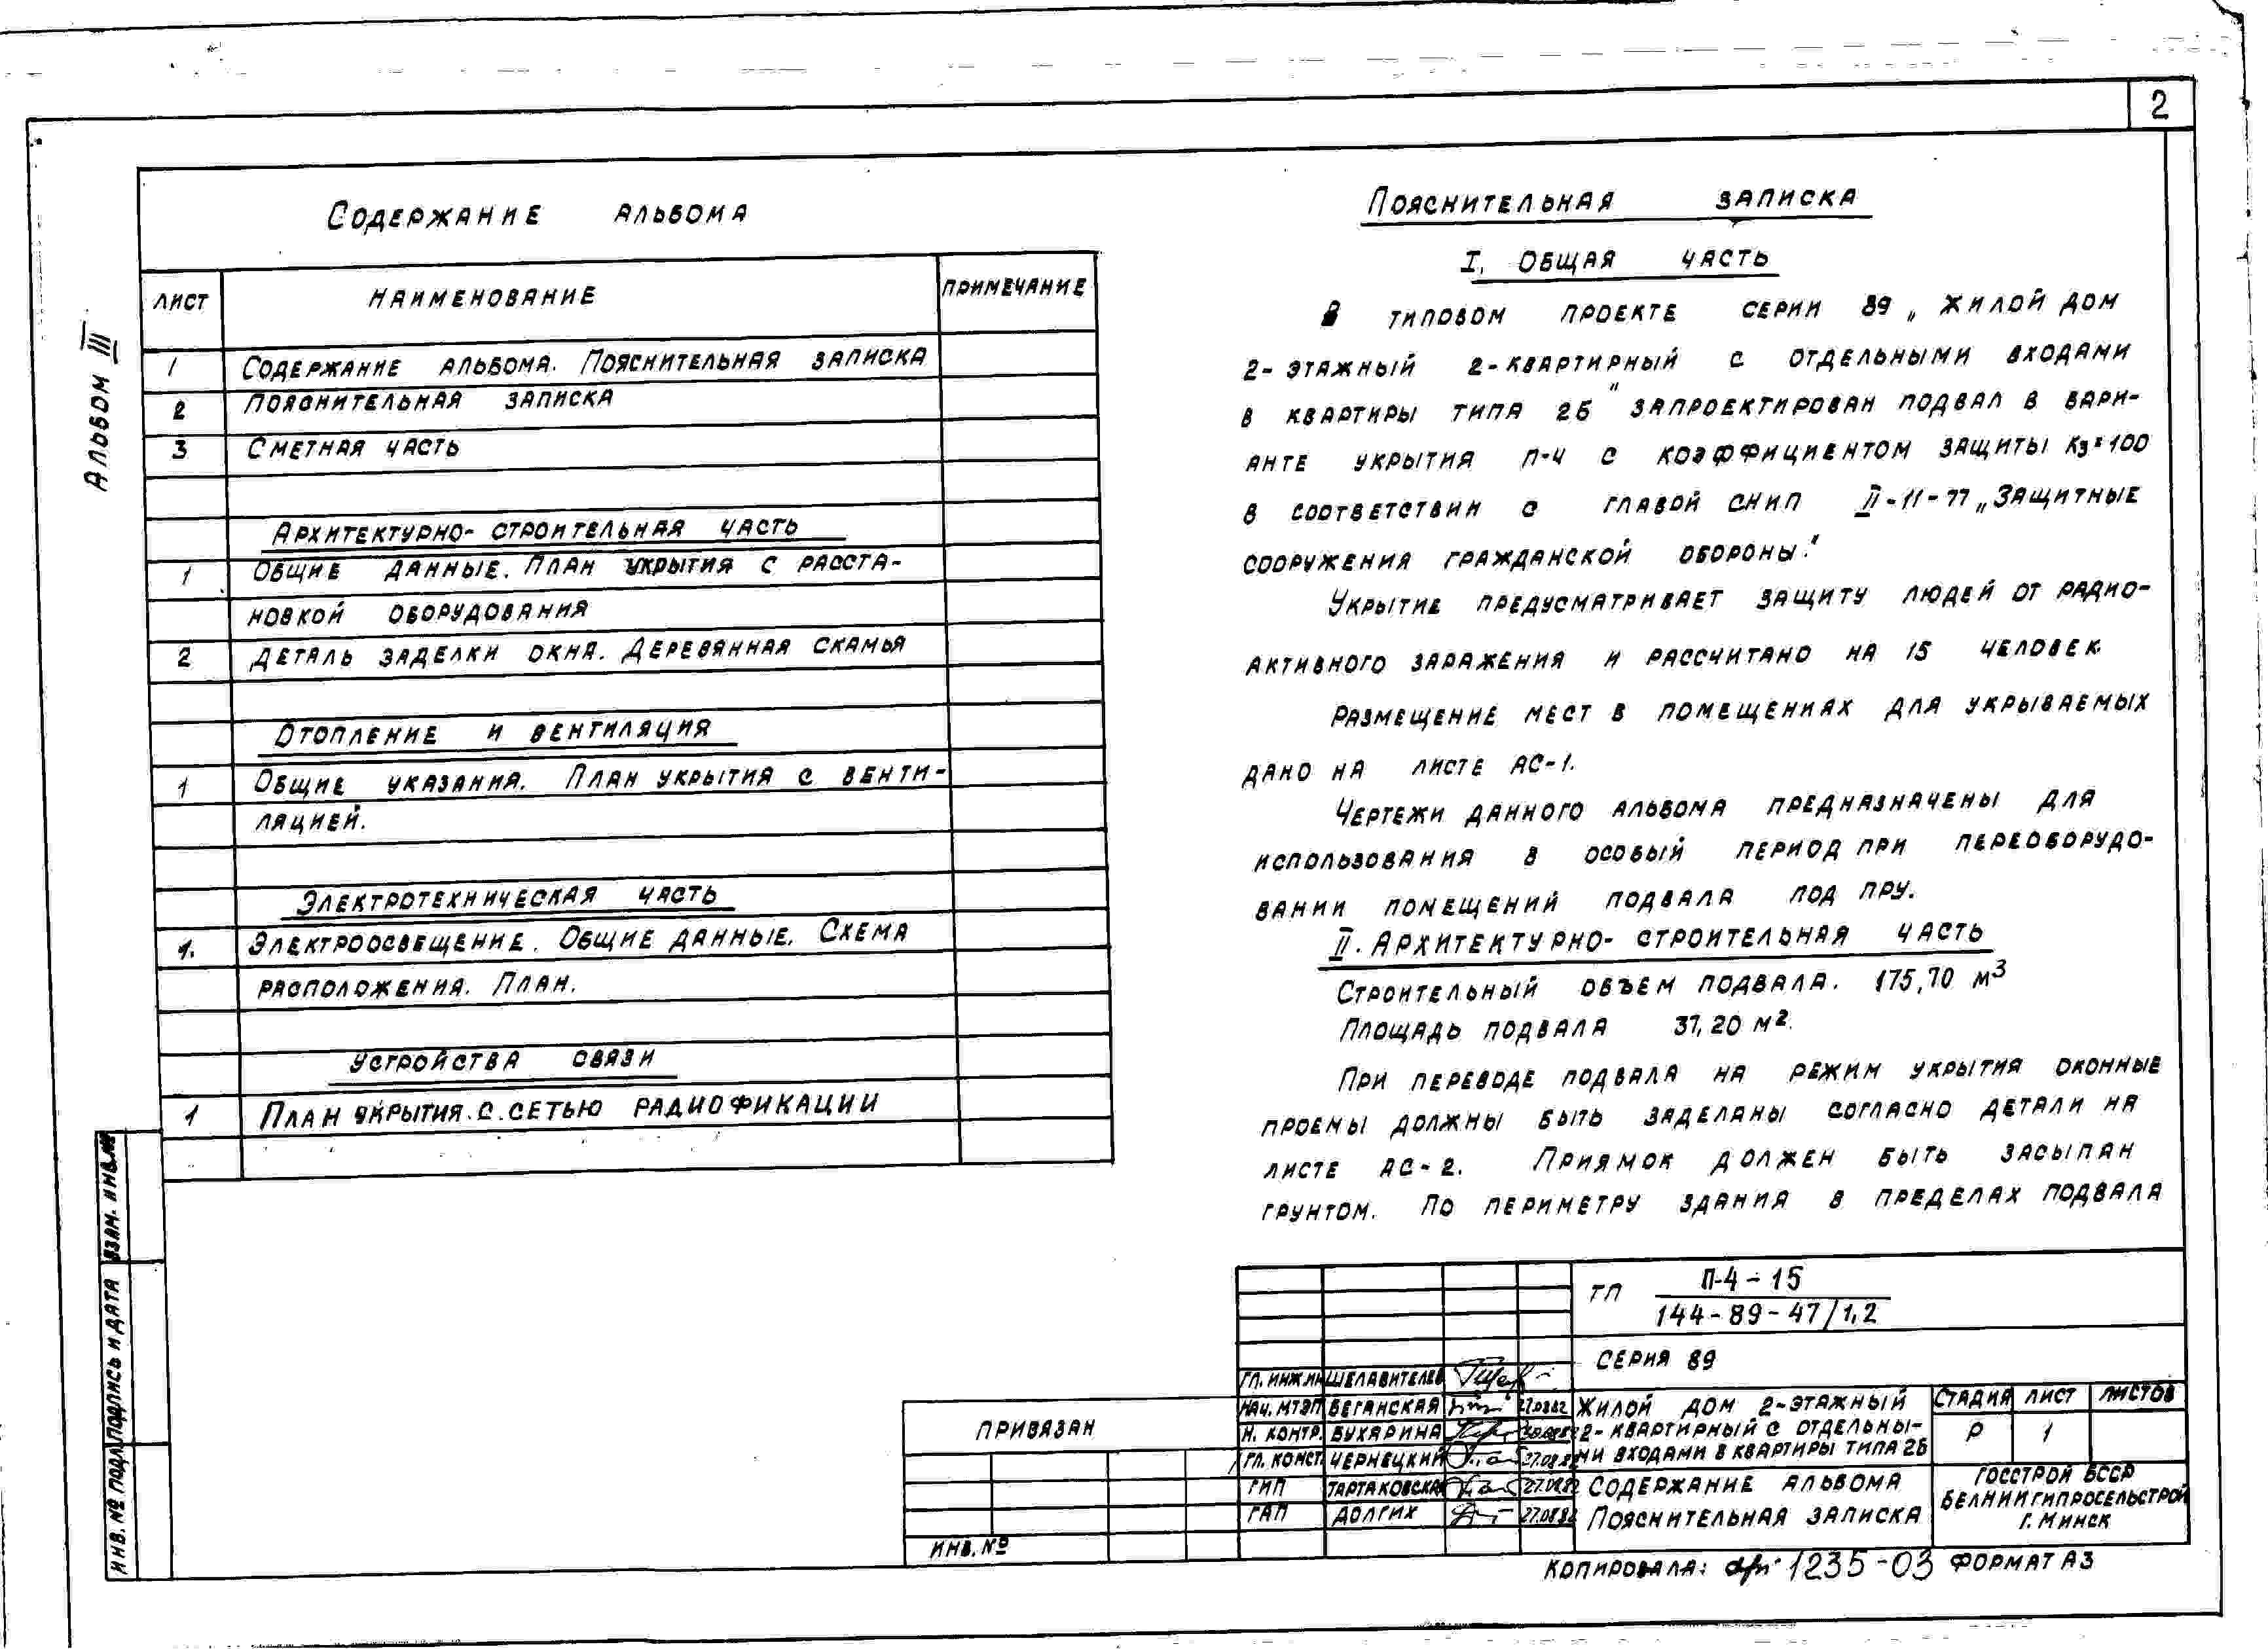 2
Альбом III
Содержание альбома
Лист Наименование Примечание
1 Содержание альбома. Пояснительная записка
2 Пояснительная записка
3 Сметная часть
Архитектурно-строительная часть
1 Общие данные. План укрытия с расста-
новкой оборудования
2 Деталь заделки окна. Деревянная скамья
Отопление и вентиляция
1 Общие указания. План укрытия с венти-
ляцией.
Электротехническая часть
1. Электроосвещение. Общие данные. Схема
расположения. План.
Устройства связи
1 План укрытия с сетью радиофикации
Пояснительная записка
I. Общая часть
В типовом проекте серии 89 „Жилой дом
2-этажный 2-квартирный с отдельными входами
в квартиры типа 2Б" запроектирован подвал в вари-
анте укрытия П-4 с коэффициентом защиты Кз=100
в соответствии с главой СНИП II-11-77 „Защитные
сооружения гражданской обороны."
Укрытие предусматривает защиту людей от радио-
активного заражения и рассчитано на 15 человек.
Размещение мест в помещениях для укрываемых
дано на листе АС-1.
Чертежи данного альбома предназначены для
использования в особый период при переоборудо-
вании помещений подвала под ПРУ.
II. Архитектурно-строительная часть
Строительный объем подвала. 175,70 м³
Площадь подвала 37,20 м².
При переводе подвала на режим укрытия оконные
проемы должны быть заделаны согласно детали на
листе АС-2. Приямок должен быть засыпан
грунтом. По периметру здания в пределах подвала
Взам. инв.№
Подпись и дата
Инв. № подл.
Привязан
Инв. №
ТП П-4-15
144-89-47/1,2
Серия 89
Гл. инж.ин Шелавителев
Нач. МТЭП Беганская 27.08.82
Н. контр. Бухарина 30.08.82
Гл. конст. Чернецкий 27.08.82
ГИП Тартаковска 27.08.82
ГАП Долгих 27.08.82
Жилой дом 2-этажный
2-квартирный с отдельны-
ми входами в квартиры типа 2Б
Стадия Лист Листов
Р 1
Содержание альбома
Пояснительная записка
Госстрой БССР
БелНИИгипросельстрой
г. Минск
Копировала: 1235-03 Формат А3